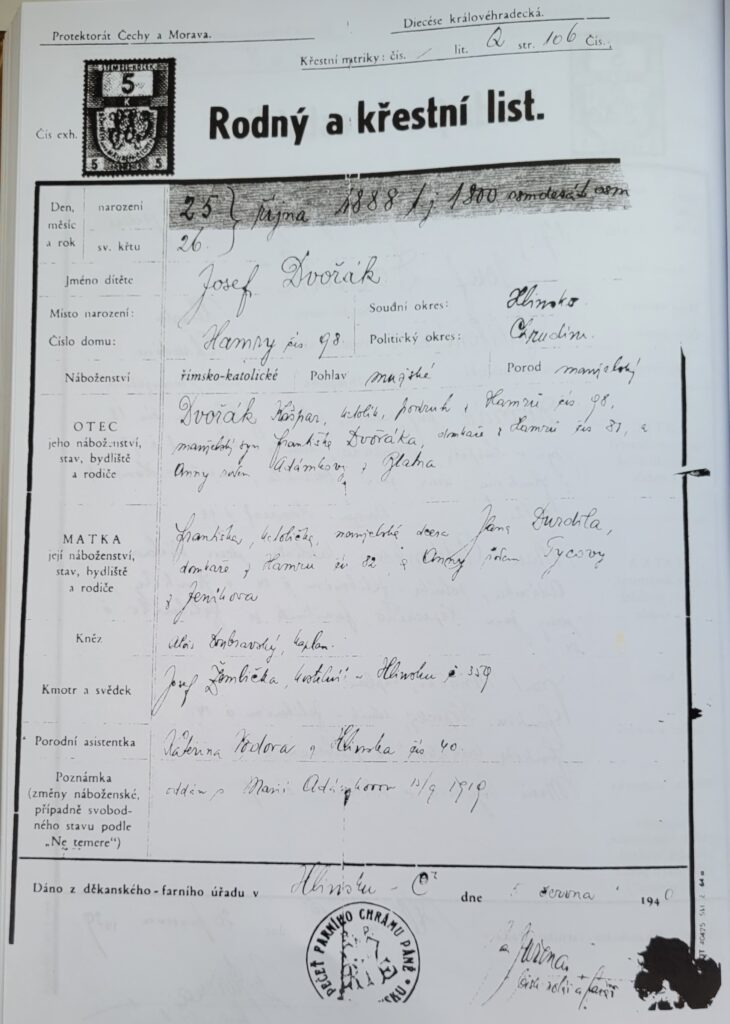 Protektorát Čechy a Morava.
Diecése královéhradecká.
Křestní matriky: čís. / lit. Q str. 106 Čís.
5
K
5 5
Čís exh.
Rodný a křestní list.
Den, měsíc a rok
narození
25 října 1888 tj 1800 osmdesát osm
sv. křtu
26.
Jméno dítěte
Josef Dvořák
Místo narození:
Číslo domu:
Hamry čis. 98
Soudní okres:
Hlinsko.
Politický okres:
Chrudim.
Náboženství
římsko-katolické
Pohlav mužské
Porod manželský
OTEC
jeho náboženství,
stav, bydliště
a rodiče
Dvořák Kašpar, katolík, podruh z Hamrů čis. 98,
manželský syn Františka Dvořáka, domkaře z Hamrů čis 81, a
Anny rozen Adámkovy z Blatna
MATKA
její náboženství,
stav, bydliště
a rodiče
Františka, katolička, manželská dcera Jana Durdila,
domkaře z Hamrů čis 82 a Anny rozen Tycovy
z Jeníkova
Kněz
Alois Doubravský, kaplan.
Kmotr a svědek
Josef Žemlička, kostelní v Hlinsku č. 359
Porodní asistentka
Kateřina Vodova z Hlinska čis 40
Poznámka
(změny náboženské,
případně svobod-
ného stavu podle
„Ne temere“)
oddán s Marií Adámkovou 1919
Dáno z děkanského-farního úřadu v Hlinsku - Č dne 5 června 1940
PEČEŤ FARNÍHO CHRÁMU PÁNĚ